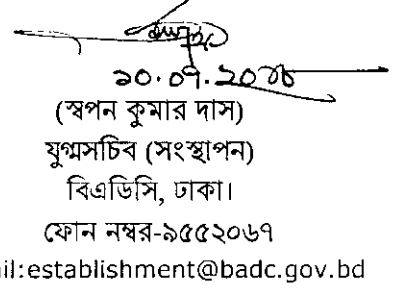 ১০.০৭.২০১৮
(স্বপন কুমার দাস)
যুগ্মসচিব (সংস্থাপন)
বিএডিসি, ঢাকা।
ফোন নম্বর-৯৫৫২০৬৭
ail:establishment@badc.gov.bd